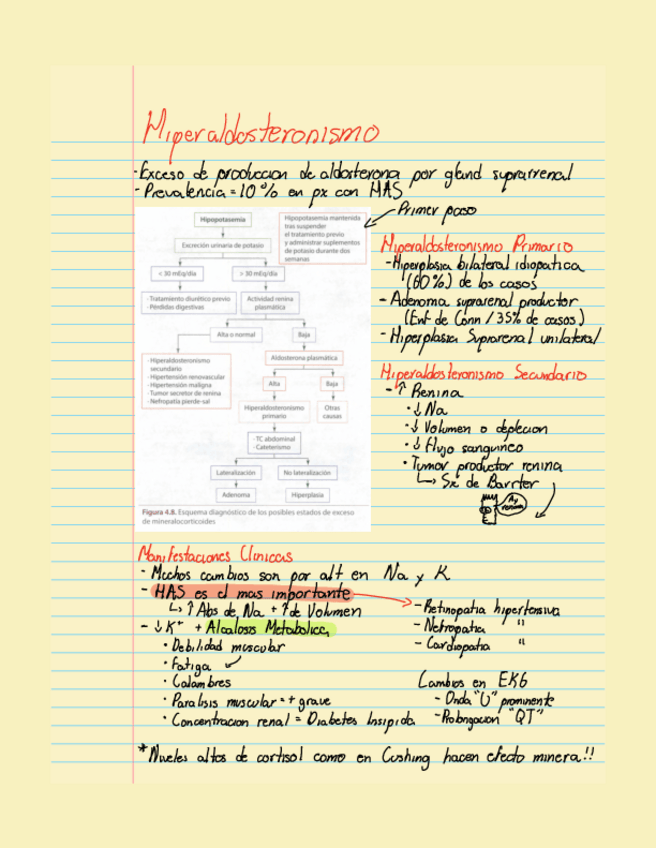 Hiperaldosteronismo
- Exceso de produccion de aldosterona por gland suprarrenal
- Prevalencia = 10% en px con HAS
Primer paso
Hipopotasemia
Excreción urinaria de potasio
Hipopotasemia mantenida
tras suspender
el tratamiento previo
y administrar suplementos
de potasio durante dos
semanas
< 30 mEq/día
> 30 mEq/día
· Tratamiento diurético previo
· Pérdidas digestivas
Actividad renina
plasmática
Alta o normal
Baja
· Hiperaldosteronismo
secundario
· Hipertensión renovascular
· Hipertensión maligna
· Tumor secretor de renina
· Nefropatía pierde-sal
Aldosterona plasmática
Alta
Baja
Hiperaldosteronismo
primario
Otras
causas
· TC abdominal
· Cateterismo
Lateralización
No lateralización
Adenoma
Hiperplasia
Figura 4.8. Esquema diagnóstico de los posibles estados de exceso
de mineralocorticoides
Hiperaldosteronismo Primario
- Hiperplasia bilateral idiopatica
(60%) de los casos
- Adenoma suprarenal productor
(Enf de Conn / 35% de casos)
- Hiperplasia Suprarenal unilateral
Hiperaldosteronismo Secundario
- ↑ Renina
· ↓ Na
· ↓ Volumen o deplecion
· ↓ Flujo sanguineo
· Tumor productor renina
↳ Sx de Barrter
Ay
renina
Manifestaciones Clinicas
- Muchos cambios son por alt en Na y K
- HAS es el mas importante
↳ ↑ Abs de Na + ↑ de Volumen
- Retinopatia hipertensiva
- Nefropatia "
- Cardiopatia "
- ↓ K+ + Alcalosis Metabolica
· Debilidad muscular
· Fatiga
· Calambres
· Paralisis muscular = + grave
· Concentracion renal = Diabetes Insipida
Cambios en EKG
- Onda "U" prominente
- Prolongacion "QT"
* Niveles altos de cortisol como en Cushing hacen efecto minera!!